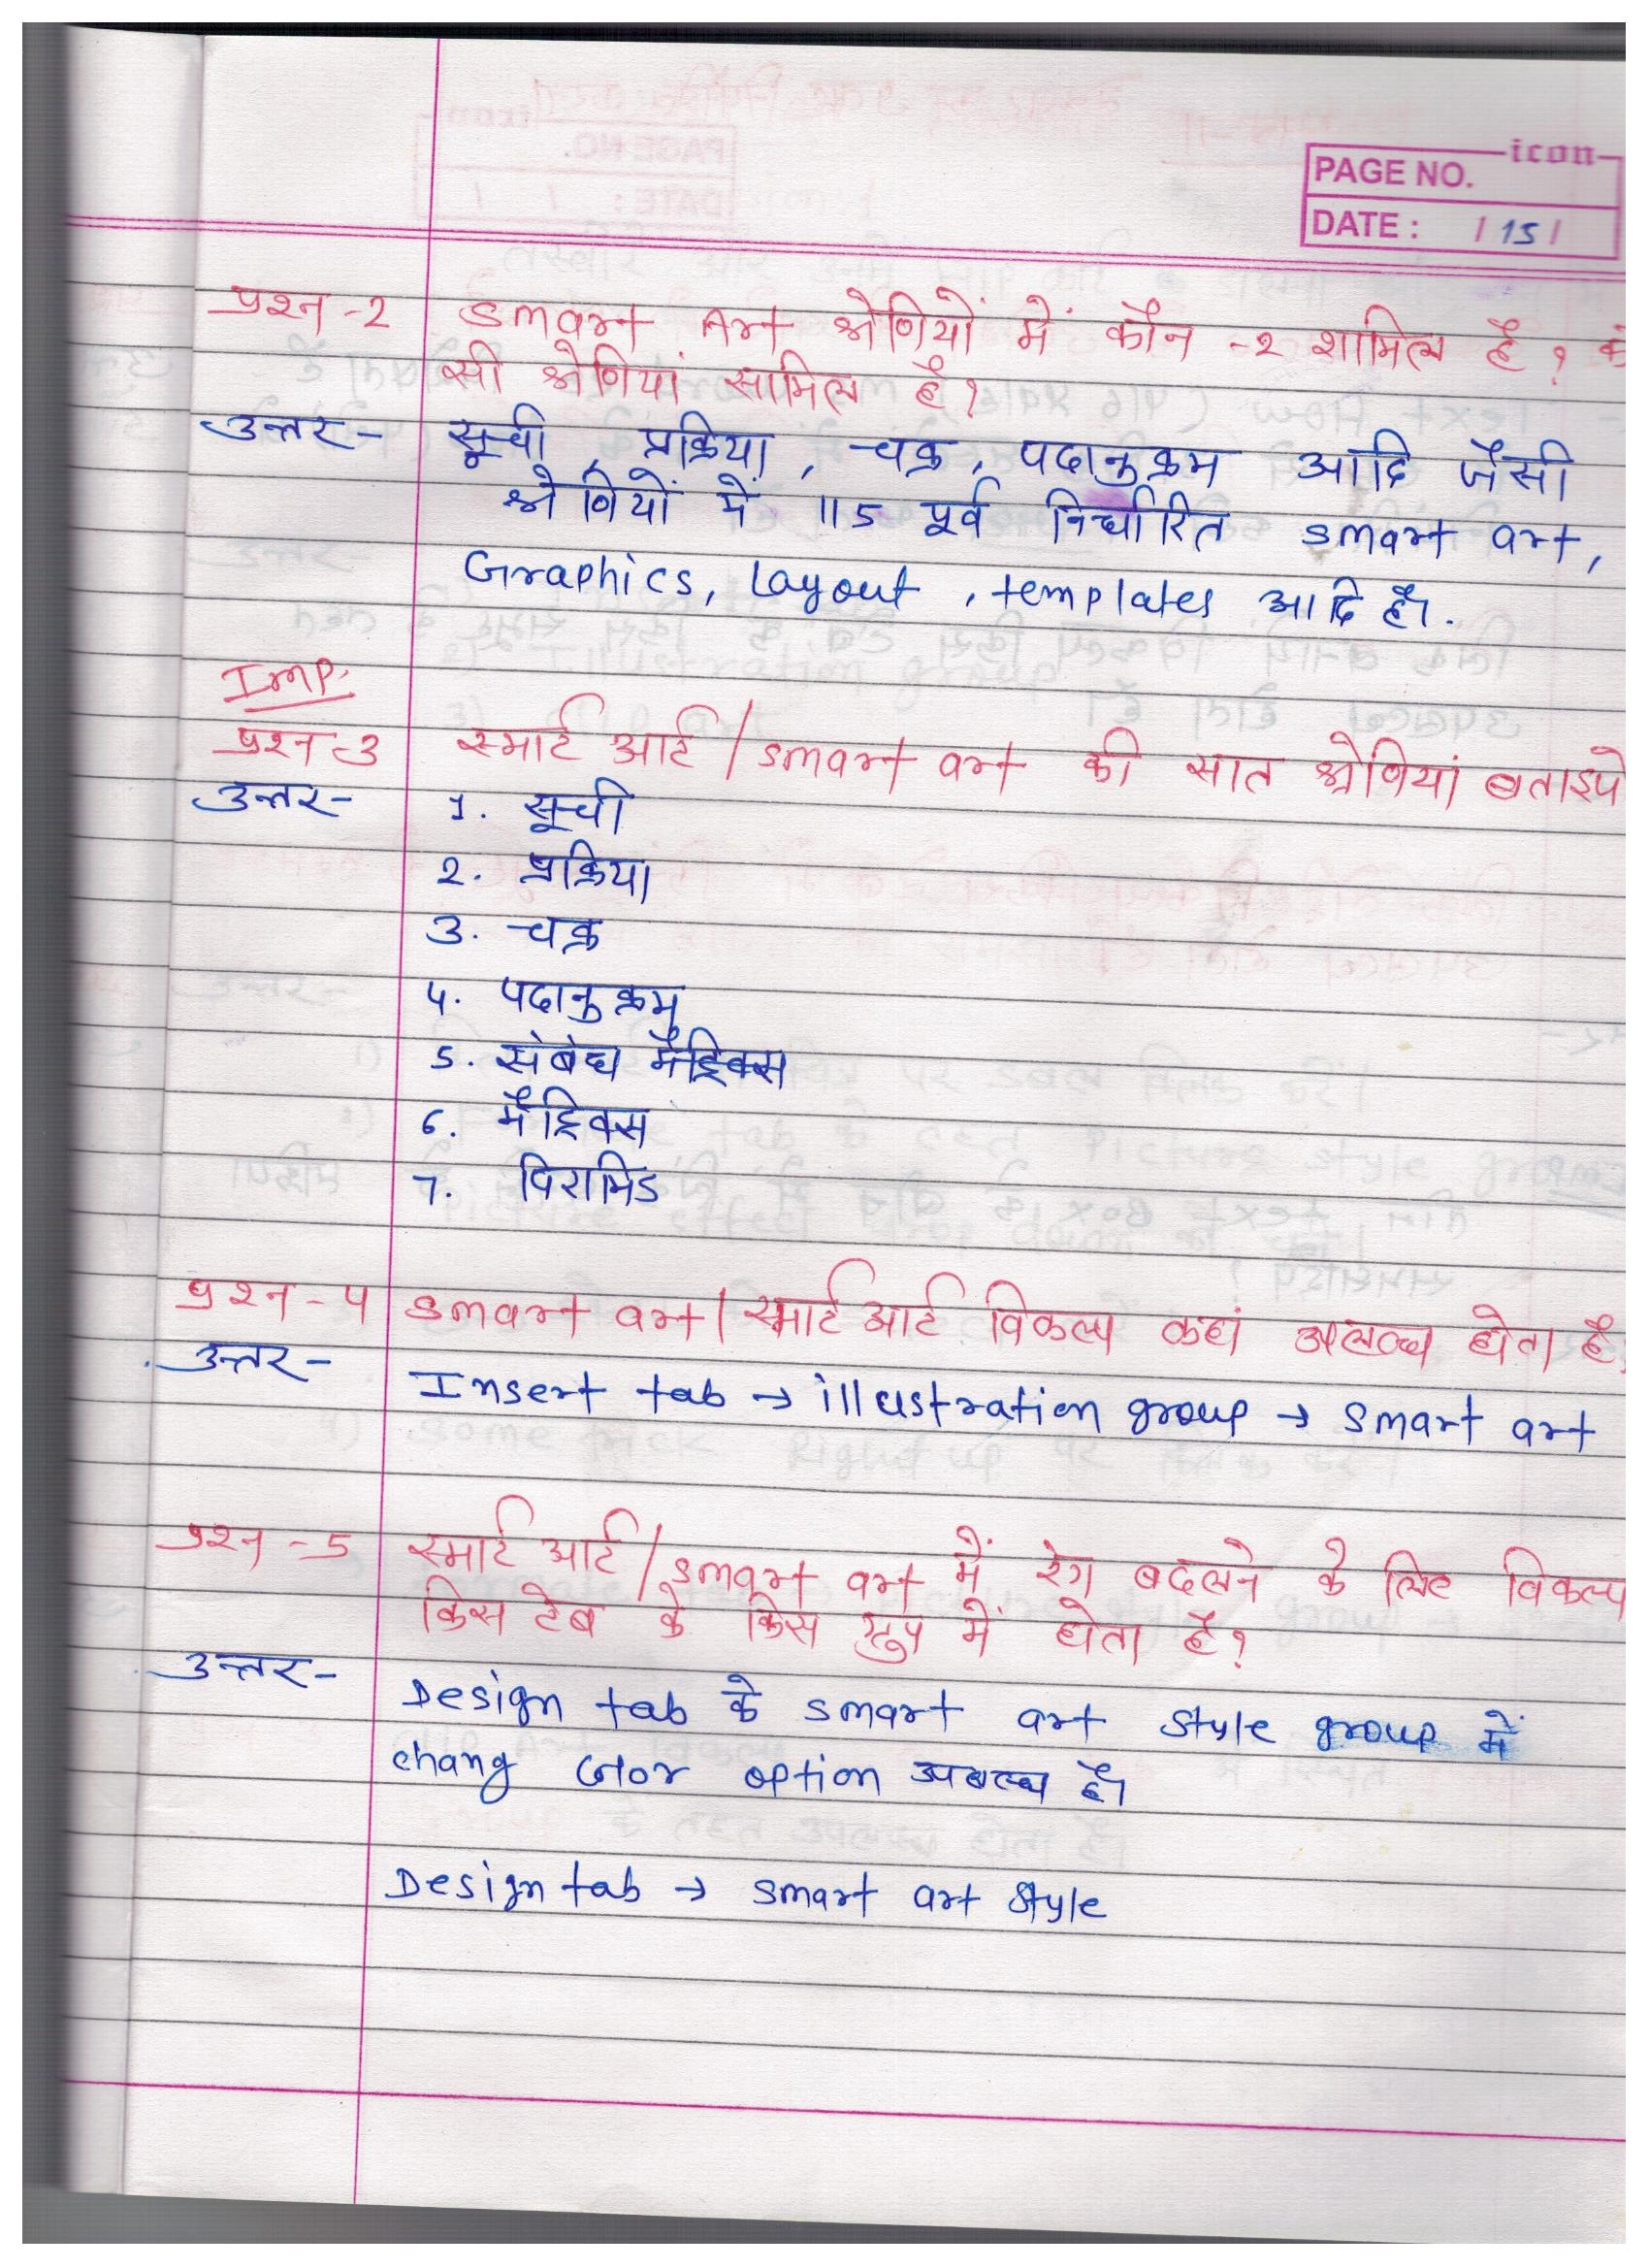 icon
PAGE NO.
DATE : / 15 /
प्रश्न -2 Smart Art श्रेणियों में कौन -2 शामिल है ?
सी श्रेणियां सामिल है ?
उत्तर- सूची, प्रक्रिया, चक्र, पदानुक्रम आदि जैसी
श्रेणियों में 115 पूर्व निर्धारित smart art,
Graphics, Layout, templates आदि है।.
Imp.
प्रश्न-3 स्मार्ट आर्ट / smart art की सात श्रेणियां बताइये
उत्तर- 1. सूची
2. प्रक्रिया
3. चक्र
4. पदानुक्रम
5. संबंध मैट्रिक्स
6. मैट्रिक्स
7. पिरामिड
प्रश्न-4 smart art / स्मार्ट आर्ट विकल्प कहां उपलब्ध होता है
उत्तर- Insert tab → illustration group → smart art
प्रश्न-5 स्मार्ट आर्ट / smart art में रंग बदलने के लिए विकल्प
किस टेब के किस ग्रुप में होता है ?
उत्तर- Design tab के smart art style group में
chang color option उपलब्ध है।
Design tab → smart art style